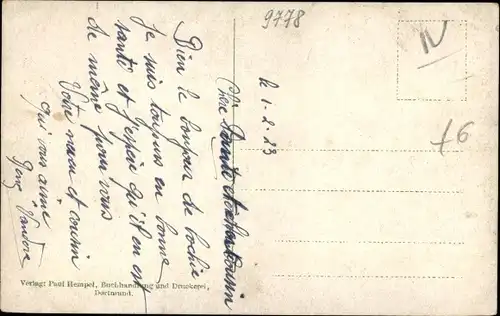 9778
le 1-2-23
Chère Tante et cher cousin
Bien le bonjour de bochie
Je suis toujours en bonne
santé et j'espère qu'il en est
de même pour vous
Votre neveu et cousin
qui vous aime
N
f6
Verlag: Paul Hempel, Buchhandlung und Druckerei,
Dortmund.